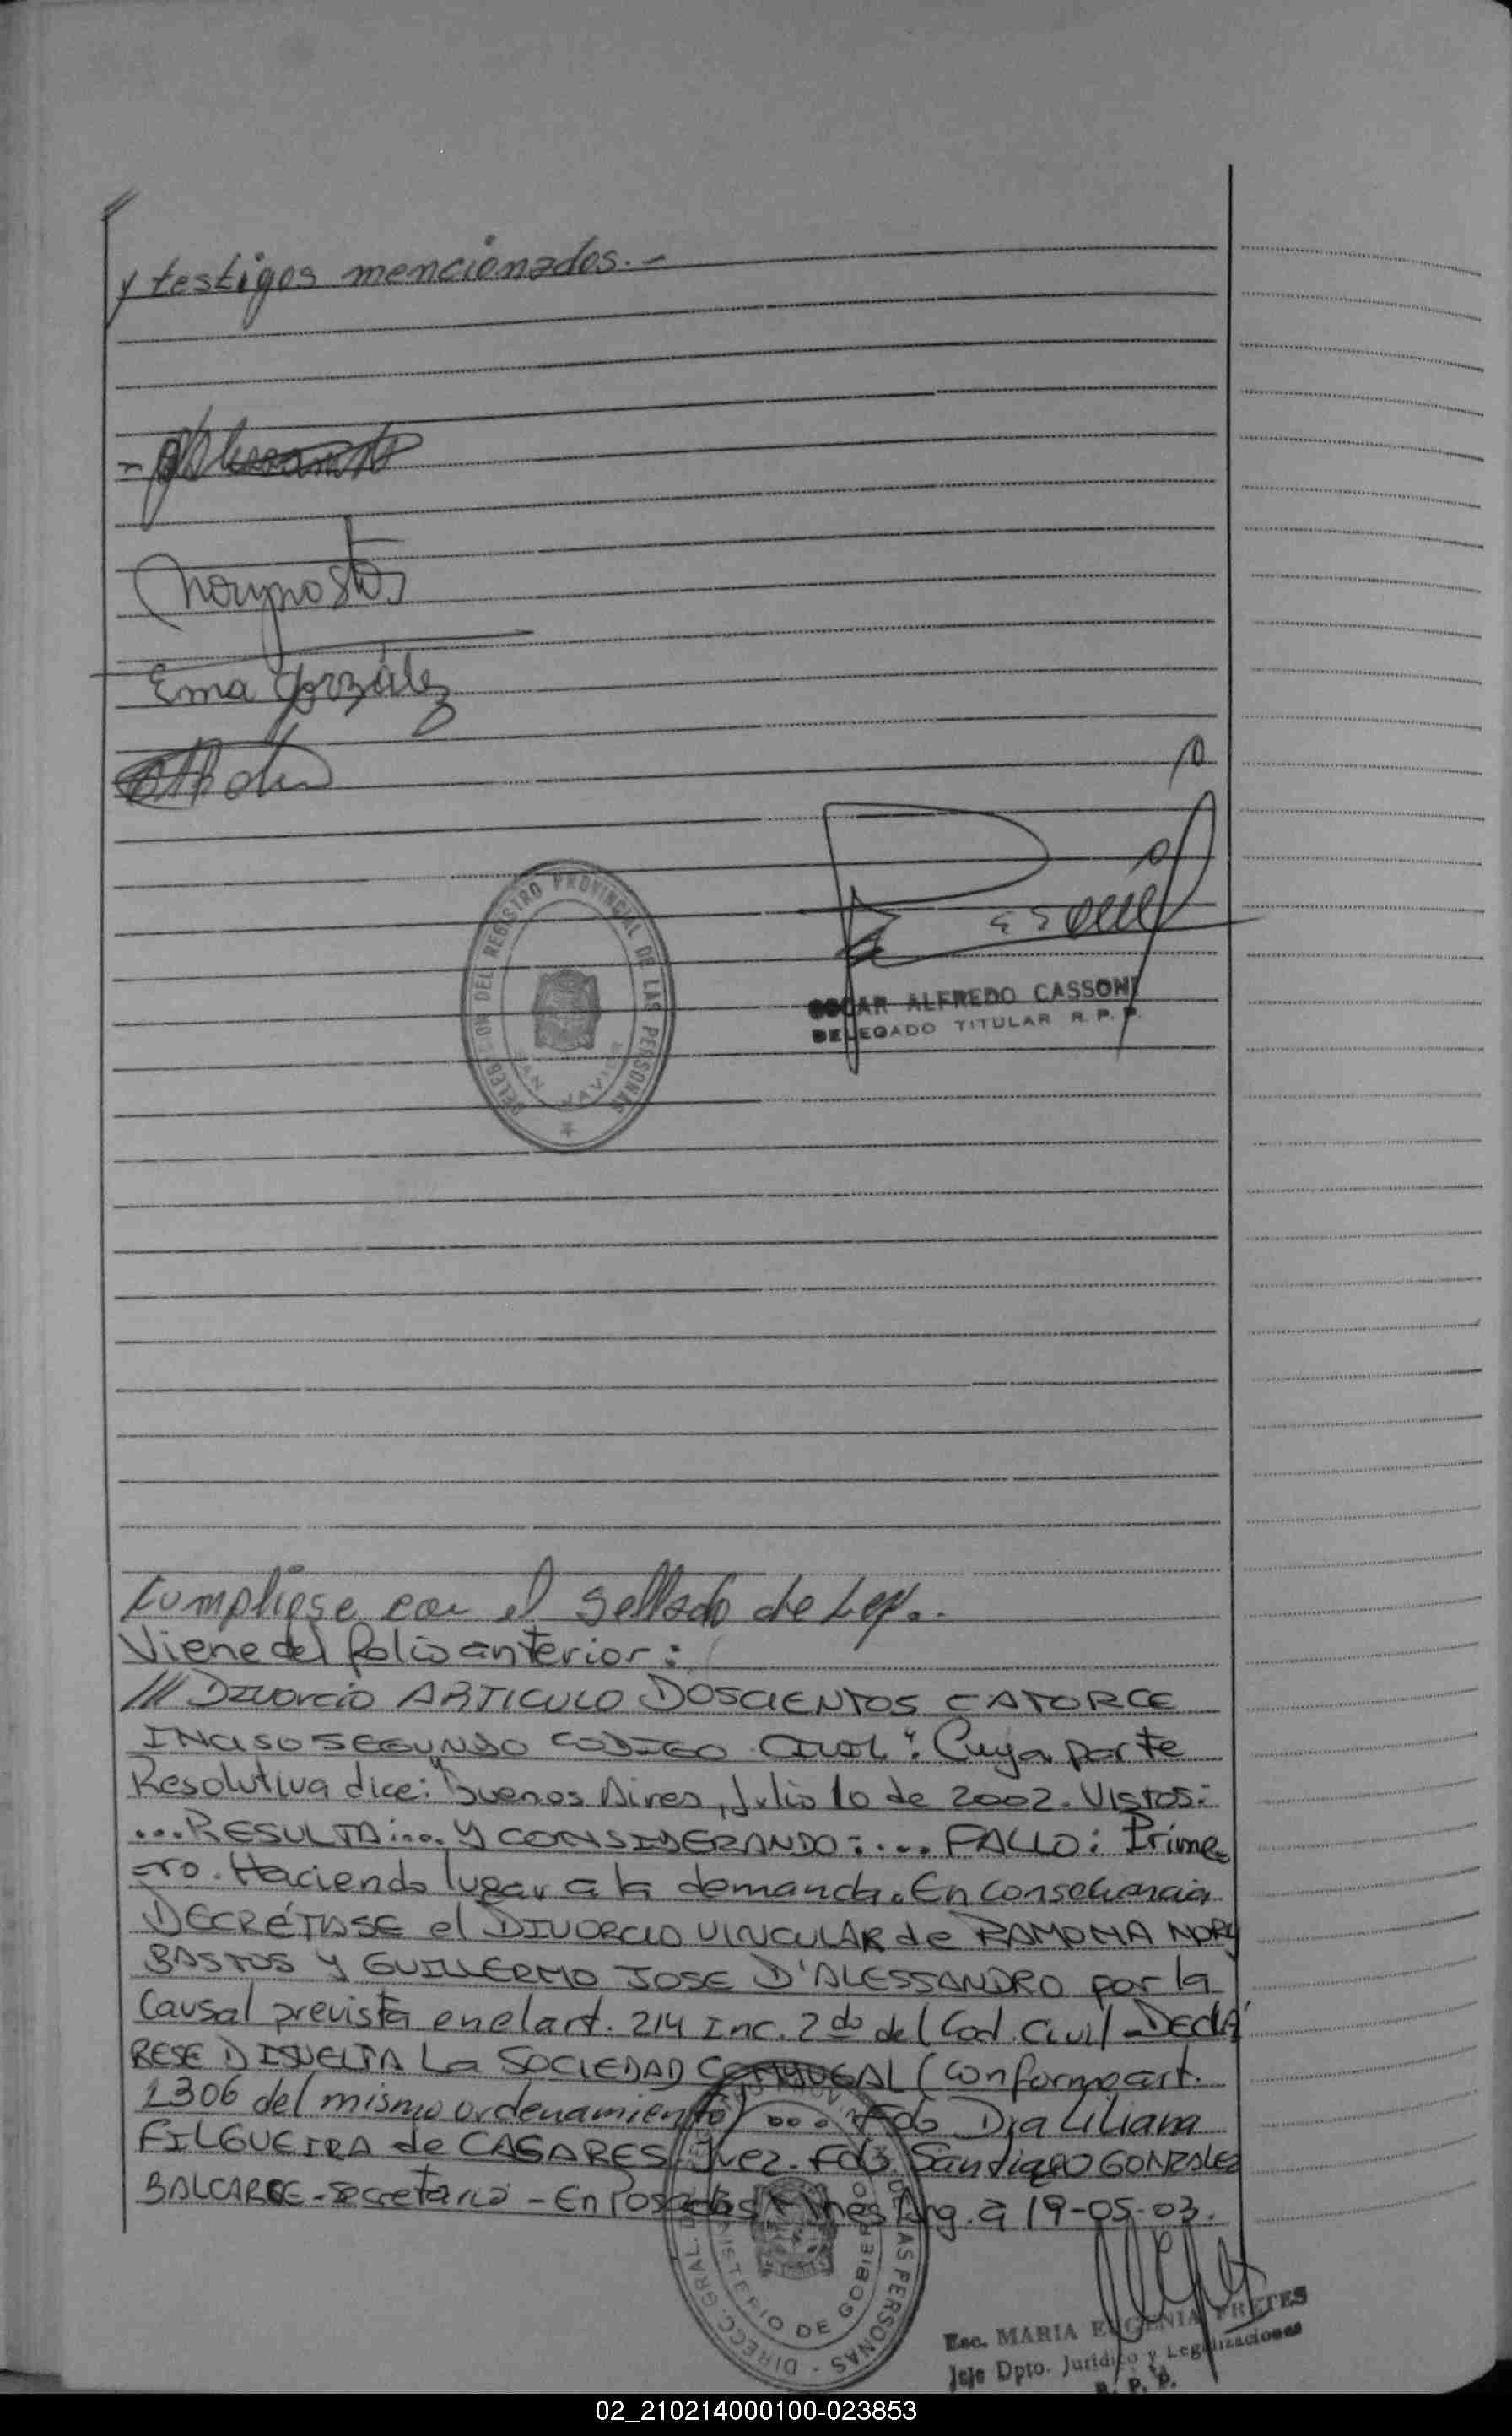 y testigos mencionados.-
Ema González
DELEGACION DEL REGISTRO PROVINCIAL DE LAS PERSONAS
SAN JAVIER
OSCAR ALFREDO CASSONI
DELEGADO TITULAR R. P. P.
Cumpliose con el sellado de Ley.-
Viene del folio anterior:
/// Divorcio ARTICULO DOSCIENTOS CATORCE
INCISO SEGUNDO CODIGO CIVIL". Cuya parte
Resolutiva dice: "Buenos Aires, Julio 10 de 2002. VISTOS:
...RESULTA:... Y CONSIDERANDO:... FALLO: Prime=
=ro. Haciendo lugar a la demanda. En consecuencia
DECRÉTASE el DIVORCIO VINCULAR de RAMONA NORY
BASTOS Y GUILLERMO JOSE D'ALESSANDRO por la
Causal prevista en el art. 214 Inc. 2do del Cod. Civil - DECLÁ
RESE DISUELTA La SOCIEDAD CONYUGAL (Conforme art.
1306 del mismo ordenamiento) ... Fdo Dra Liliana
FILGUEIRA de CASARES Juez - Fdo. Santiago GONZALEZ
BALCARCE - Secretario - En Posadas Mnes Arg. a 19-05-03.
DIRECC. GRAL. DE LAS PERSONAS
MINISTERIO DE GOBIERNO
Esc. MARIA EUGENIA FRETES
Jefe Dpto. Jurídico y Legalizaciones
R. P. P.
02_210214000100-023853